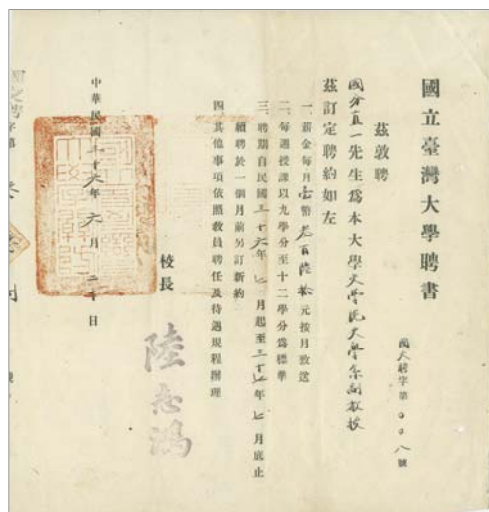 國立臺灣大學聘書
國大聘字第００八號
茲敦聘
國分直一先生爲本大學文學院大學系副教授
茲訂定聘約如左
一、薪金每月台幣叁百陸拾元按月致送
二、每週授課以九學分至十二學分爲標準
三、聘期自民國三十六年七月起至三十七年七月底止
續聘於一個月前另訂新約
四、其他事項依照敎員聘任及待遇規程辦理
校長
陸志鴻
中華民國三十六年元月二十日